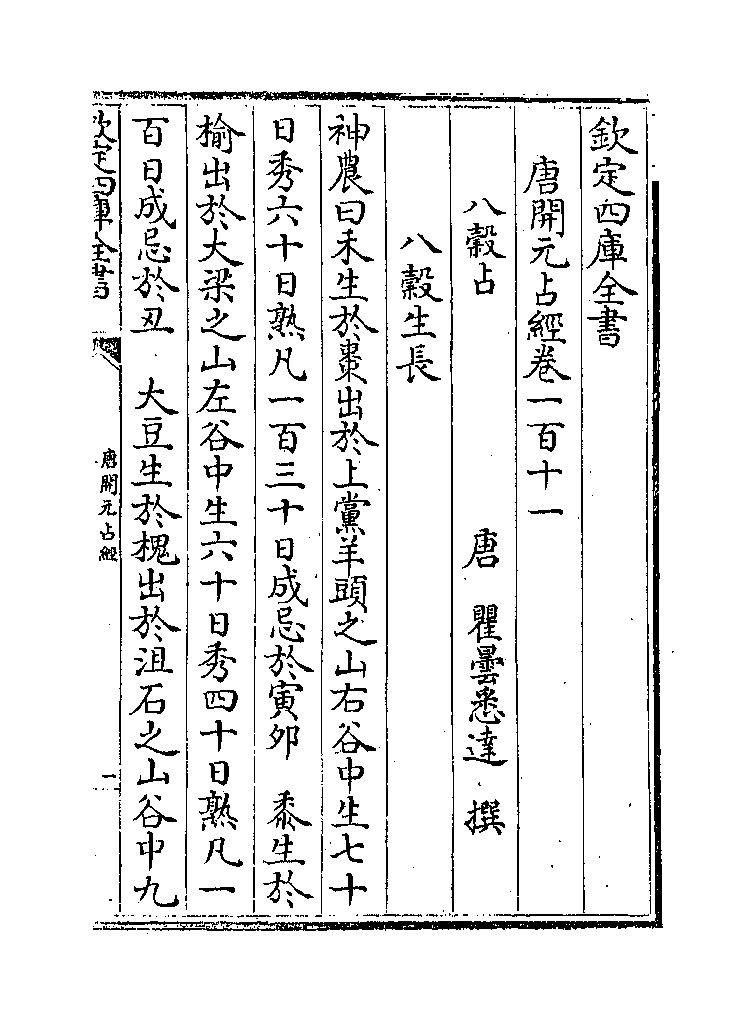 欽定四庫全書
唐開元占經卷一百十一
唐 瞿曇悉達 撰
八穀占
八穀生長
神農曰禾生於棗出於上黨羊頭之山右谷中生七十
日秀六十日熟凡一百三十日成忌於寅夘 黍生於
榆出於大梁之山左谷中生六十日秀四十日熟凡一
百日成忌於丑 大豆生於槐出於沮石之山谷中九
欽定四庫全書
唐開元占經
一